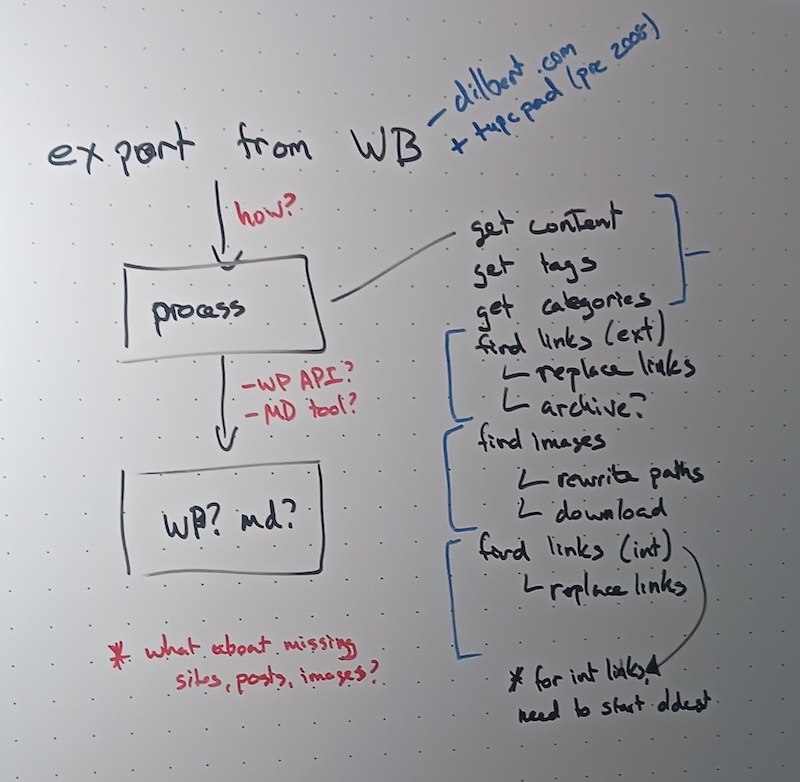 - dilbert.com
+ typepad (pre 2008)
export from WB
how?
process
- WP API?
- MD tool?
WP? md?
* what about missing
sites, posts, images?
get content
get tags
get categories
find links (ext)
replace links
archive?
find images
rewrite paths
download
find links (int)
replace links
* for int links,
need to start oldest